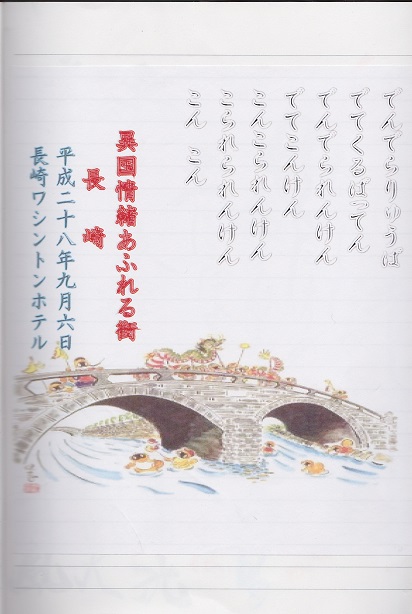 でんでらりゅうば
でてくるばってん
でんでられんけん
でてこんけん
こんこられんけん
こられられんけん
こん　こん
異国情緒あふれる街
長　崎
平成二十八年九月六日
長崎ワシントンホテル